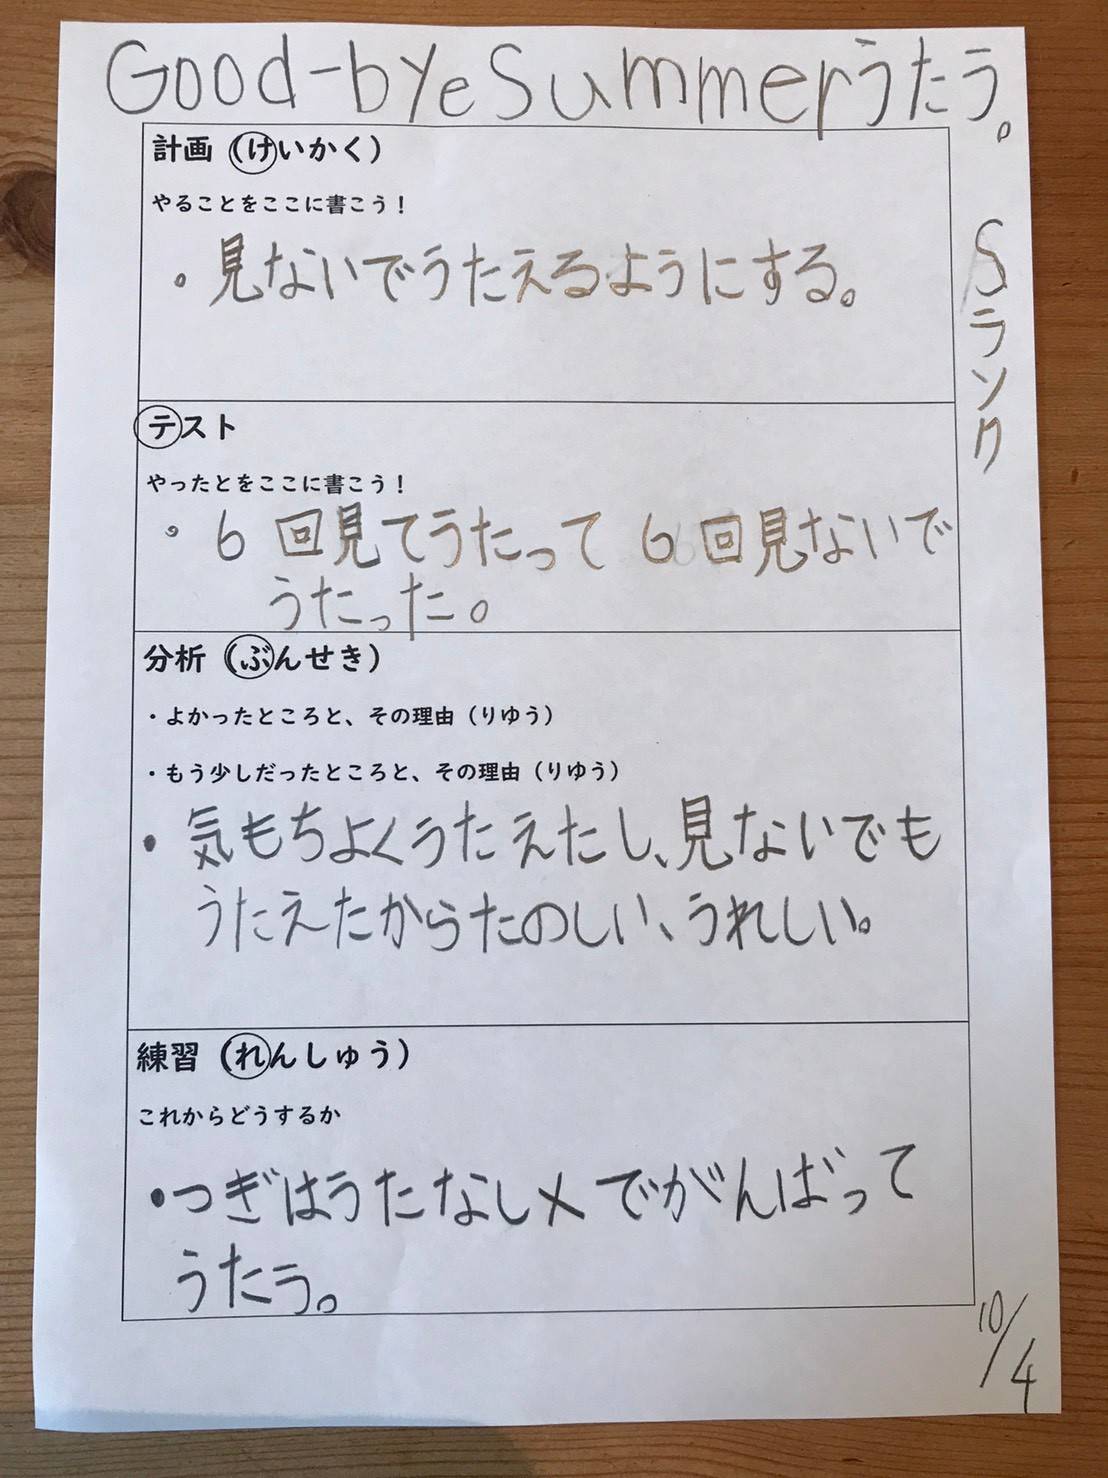 Good-bye Summerうたう。
Sランク
計画（けいかく）
やることをここに書こう！
・見ないでうたえるようにする。
テスト
やったとをここに書こう！
・6回見てうたって 6回見ないで
うたった。
分析（ぶんせき）
・よかったところと、その理由（りゆう）
・もう少しだったところと、その理由（りゆう）
・気もちよくうたえたし、見ないでも
うたえたからたのしい、うれしい。
練習（れんしゅう）
これからどうするか
・つぎはうたなしメでがんばって
うたう。
10/4